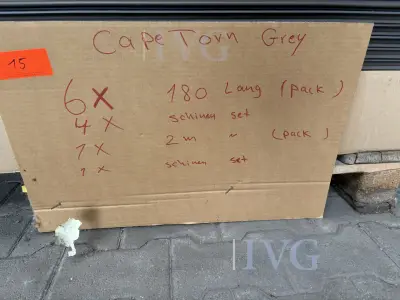 Cape Torn Grey
15
6x 180 Lang (pack)
4x schinen set
1x 2m " (pack)
1x schinen set
IVG
IVG